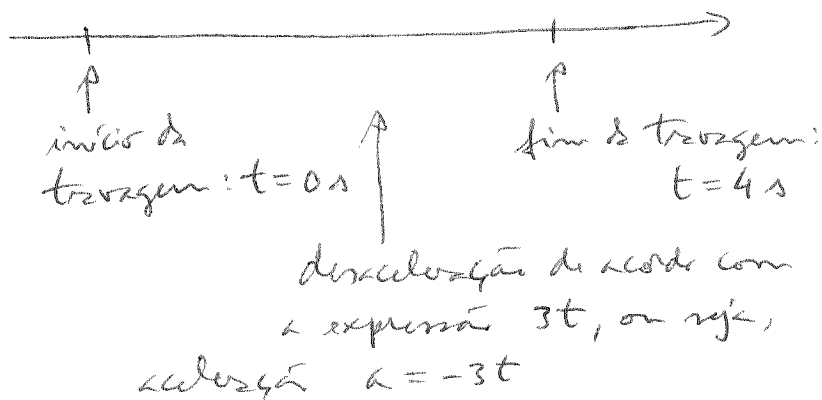 início da
travagem: t = 0 s
fim da travagem:
t = 4 s
desaceleração de acordo com
a expressão 3t, ou seja,
aceleração a = -3t